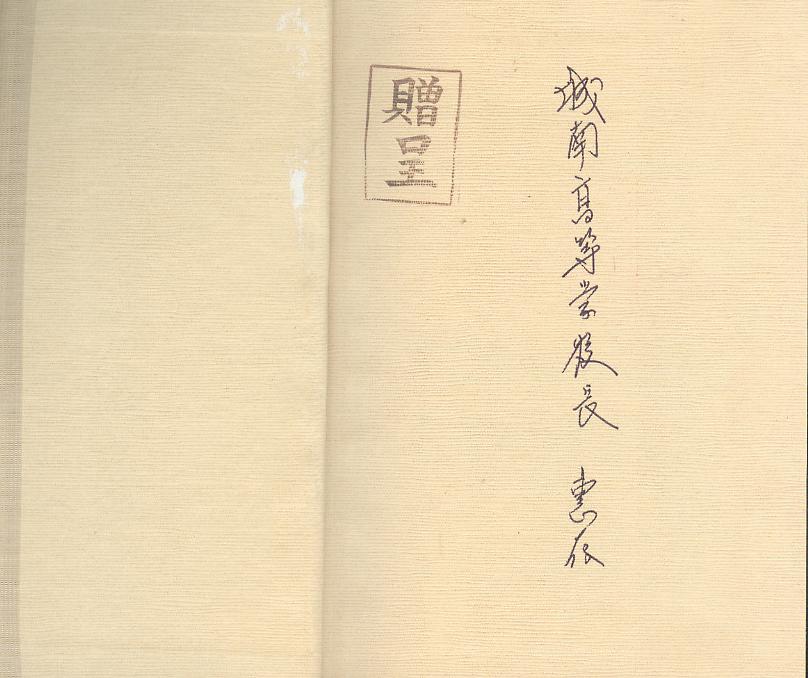 城南高等学校長 惠存
贈呈